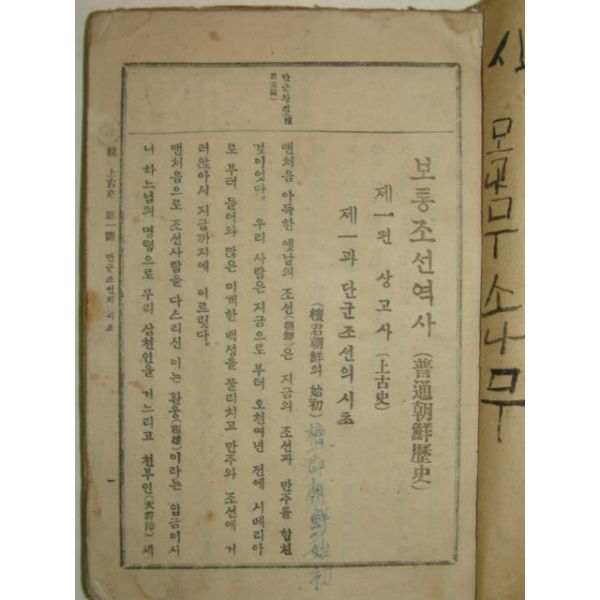 보통조선역사 (普通朝鮮歷史)
제一편 상고사 (上古史)
제一과 단군조선의 시초
(檀君朝鮮의 始初)
맨처음 아득한 옛날의 조선(朝鮮)은 지금의 조선과 만주를 합친
것이엇다. 우리 사람은 지금으로 부터 오천여년 전에 시베리아
로 부터 들어와 많은 미개한 백성을 물리치고 만주와 조선에 거
러앉아서 지금까지에 이르릿다.
맨처음으로 조선사람을 다스리신 이는 환웅(桓雄)이라는 임금이시
니 하느님의 명령으로 무리 삼천인을 거느리고 천부인(天府印) 세
上古史 第一課 단군조선의 시초
一
朝鮮 始初
소나무